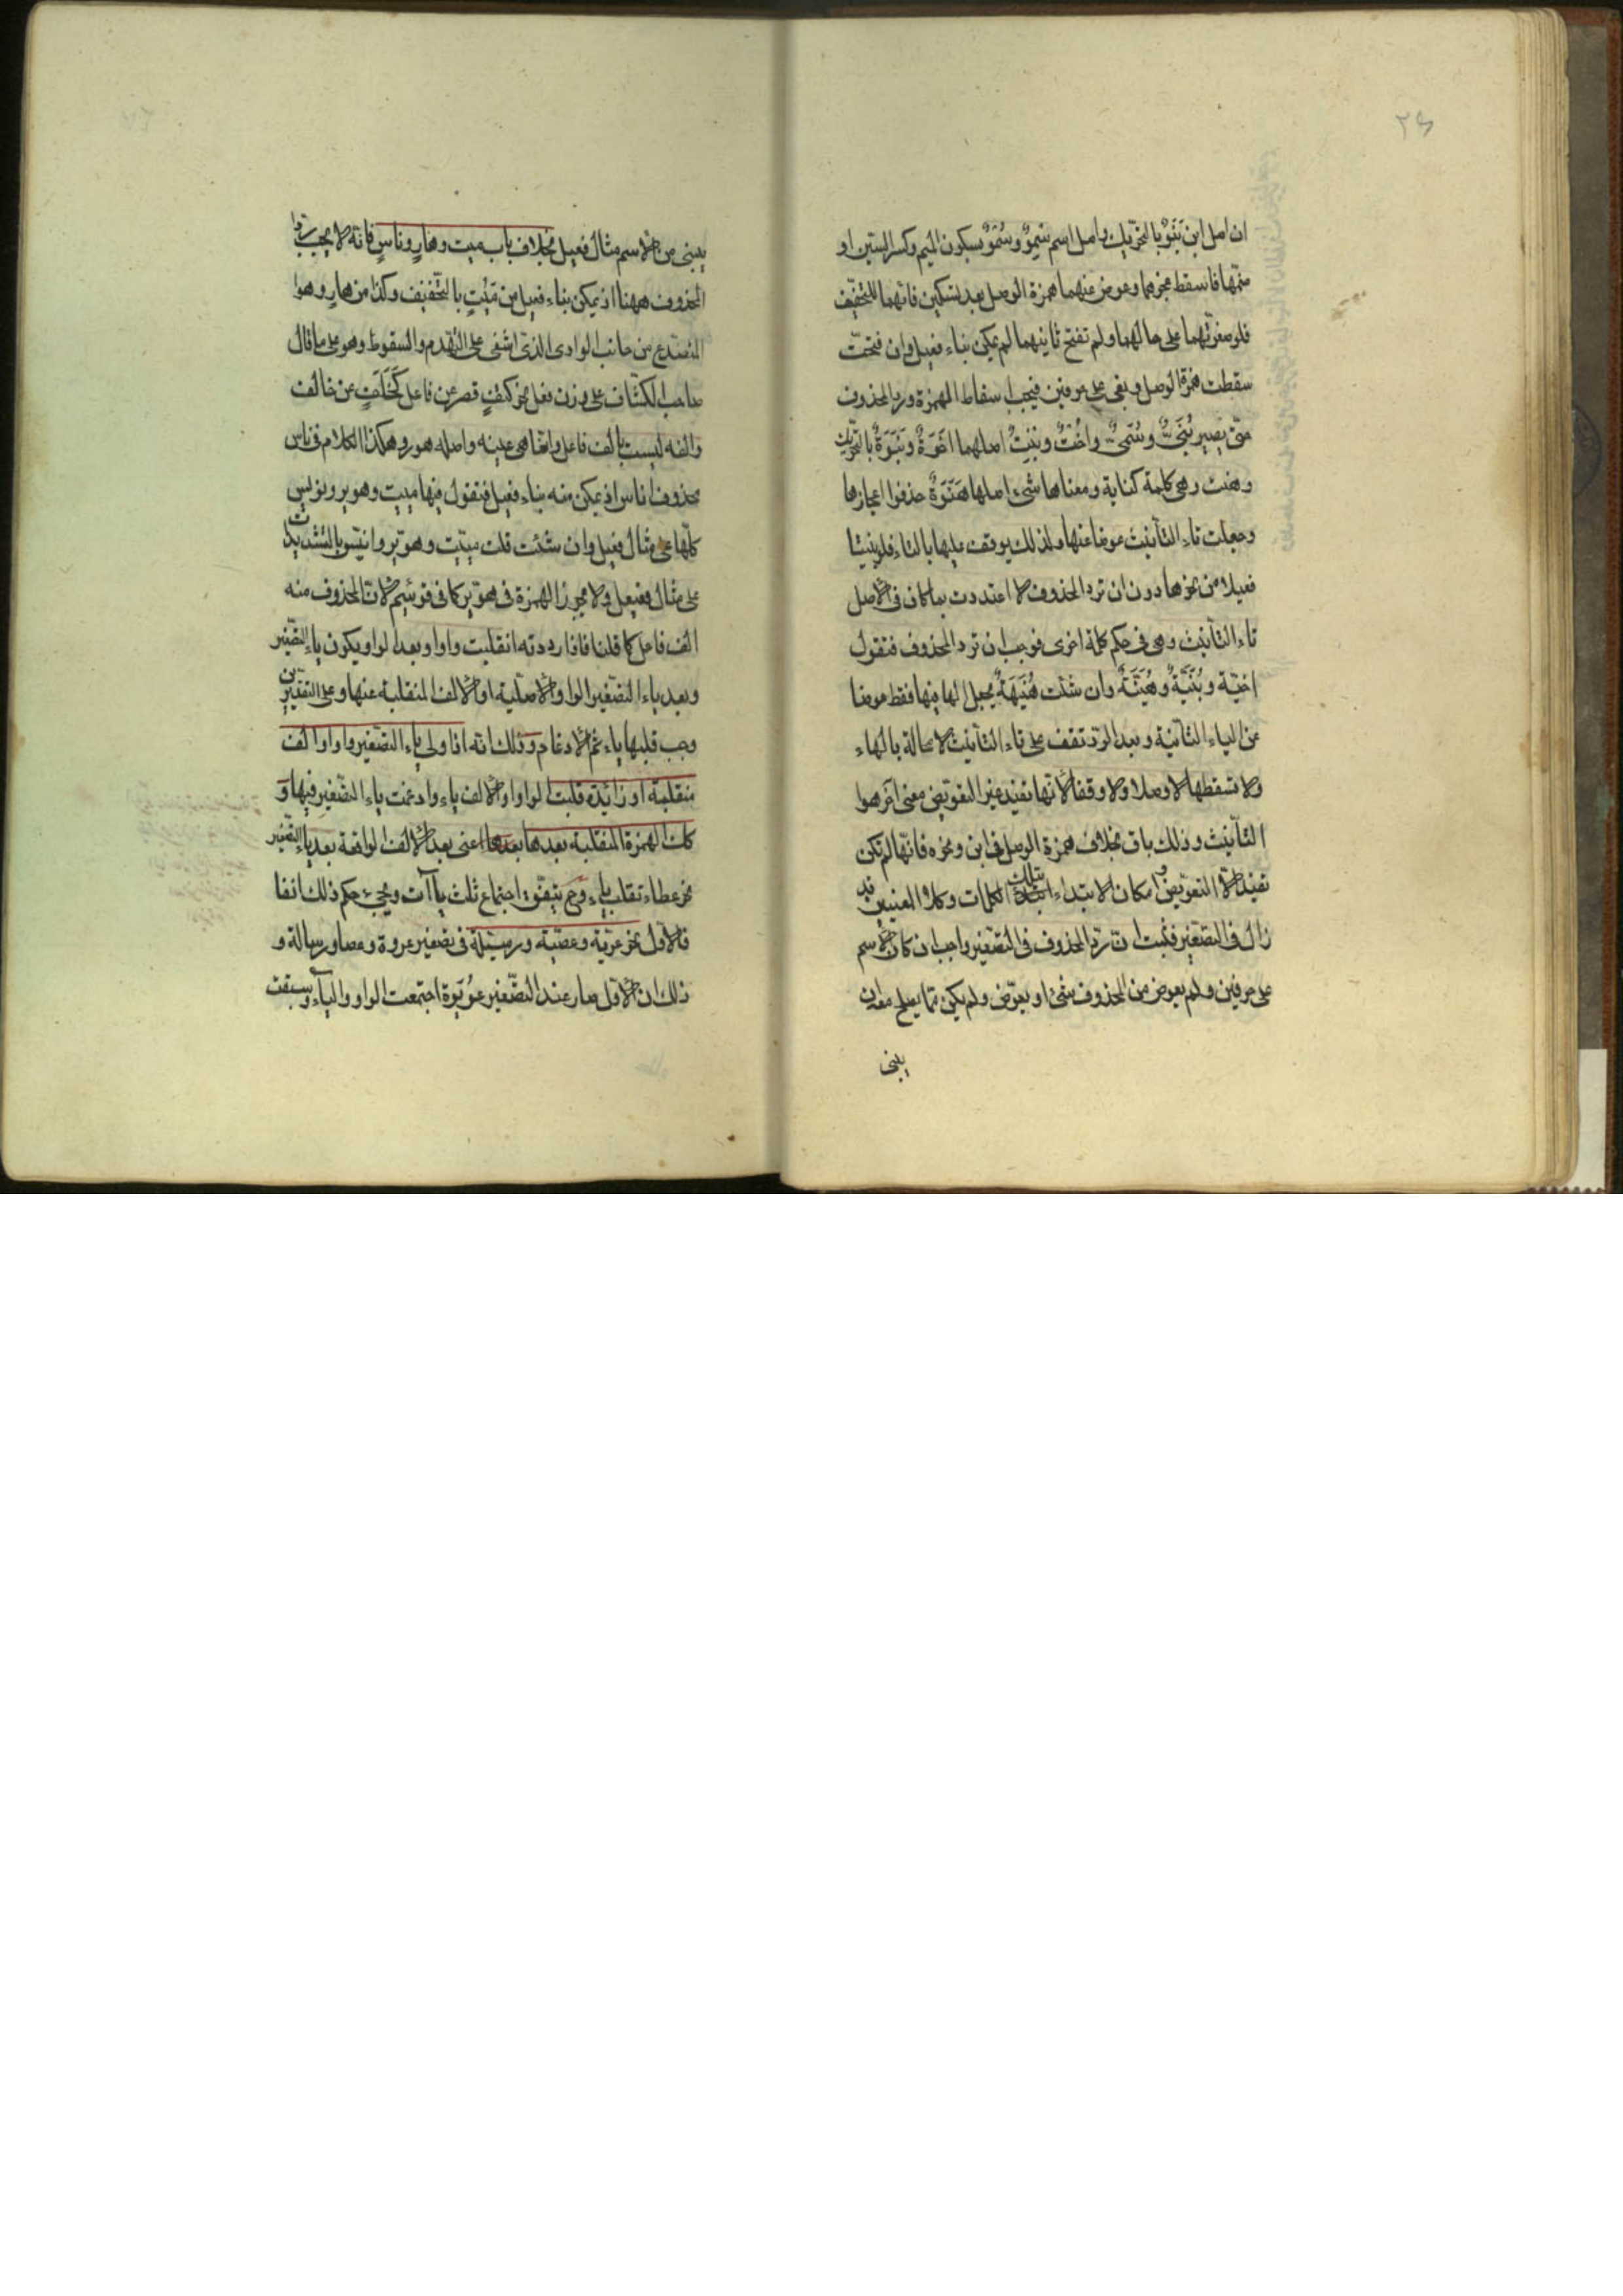 ان اصل ابن بَنَوٌ بالتحريك واصل اسم سِمْوٌ وسُمْوٌ بسكون الميم وكسر السين او
ضمّها فاسقط عجزهما وعوض عنهما همزة الوصل بعد تسكين فائهما للتخفيف
فلو صغرتهما على حالهما ولم تفتح ثانيهما لم يمكن بناء فعيل وان فتحت
سقطت همزة الوصل وبقى على حرفين فيجب اسقاط الهمزة ورد المحذوف
حتى يصير بُنَىٌّ وسُمَىٌّ واُخْتٌ وبِنْتٌ اصلهما اَخَوَةٌ وبَنَوَةٌ بالتحريك
وهنت وهى كلمة كناية ومعناها شىء اصلها هَنَوَةٌ حذفوا اعجازها
وجعلت تاء التأنيث عوضا عنها ولذلك يوقف عليها بالتاء فلو بنيتا
فعيلا من نحوها دون ان ترد المحذوف لاعتددت بما كان فى الاصل
تاء التأنيث وهى فى حكم كلمة اخرى فوجب ان ترد المحذوف فتقول
اخيّة وبُنَيَّةٌ وهُنَيَّةٌ وان شئت هُنَيهَةٌ يجعل الها فيها فقط عوضا
عن الياء الثانية وبعد الرّد تقف على تاء التأنيث لا محالة بالهاء
ولا تسقطها لا وصلا ولا وقفا لانها تفيد غير التعويض معنى آخر هو
التأنيث وذلك باق بخلاف همزة الوصل فى ابن ونحوه فانّها لم تكن
تفيد الا التعويض وامكان الابتداء بتلك الكلمات وكلا المعنيين قد
زال فى التصغير فثبت ان ردّ المحذوف فى التصغير واجب ان كان الاسم
على حرفين ولم يعوض من المحذوف شىء او يعوّض ولم يكن مما يصلح معه ان
يبنى
يبنى من الاسم مثال فعيل بخلاف باب ميت وهارٍ وناسٍ فانه لا يجب ردّ
المحذوف ههنا اذ يمكن بناء فعيل من مَيْتٍ بالتخفيف وكذا من هارٍ وهو
المتصدع من جانب الوادى الذى اشفى على التهدم والسقوط وهو على ما قال
صاحب الكشّاف على وزن فعل نحو كتفٍ قصر عن فاعل كخَلَفٍ عن خالف
والفه ليست بالف فاعل وانما هى عينه واصله هور وهكذا الكلام فى ناس
محذوف اناس اذ يمكن منه بناء فعيل فتقول فيها مييت وهوير ونويس
كلها على مثال فعيل وان شئت قلت ميّت وهويّر وانيّس بالتشديدات
على مثال فعيعل ولا يجوز الهمزة فى هويّر كما فى قويئم لان المحذوف منه
الف فاعل كما قلنا فاذا رددته انقلبت واوا وبعد الواو يكون ياء التصغير
وبعد ياء التصغير الواو الاصلية او الالف المنقلبة عنها وعلى التقديرين
وجب قلبها ياء ثم الادغام وذلك انه اذا ولى ياء التصغير واو او الف
منقلبة او زائدة قلبت الواو او الالف ياء وادغمت ياء التصغير فيها و
كذا الهمزة المنقلبة بعدها اعنى بعد الالف الواقعة بعد ياء التصغير
نحو عطاء تقلب ياء وح يتفق اجتماع ثلث ياآت ويجىء حكم ذلك انفا
فالاول نحو عريّة وعصيّة ورسيّلة فى تصغير عروة وعصا ورسالة و
ذلك ان الاول صار عند التصغير عُرَيوة اجتمعت الواو والياء وسبقت